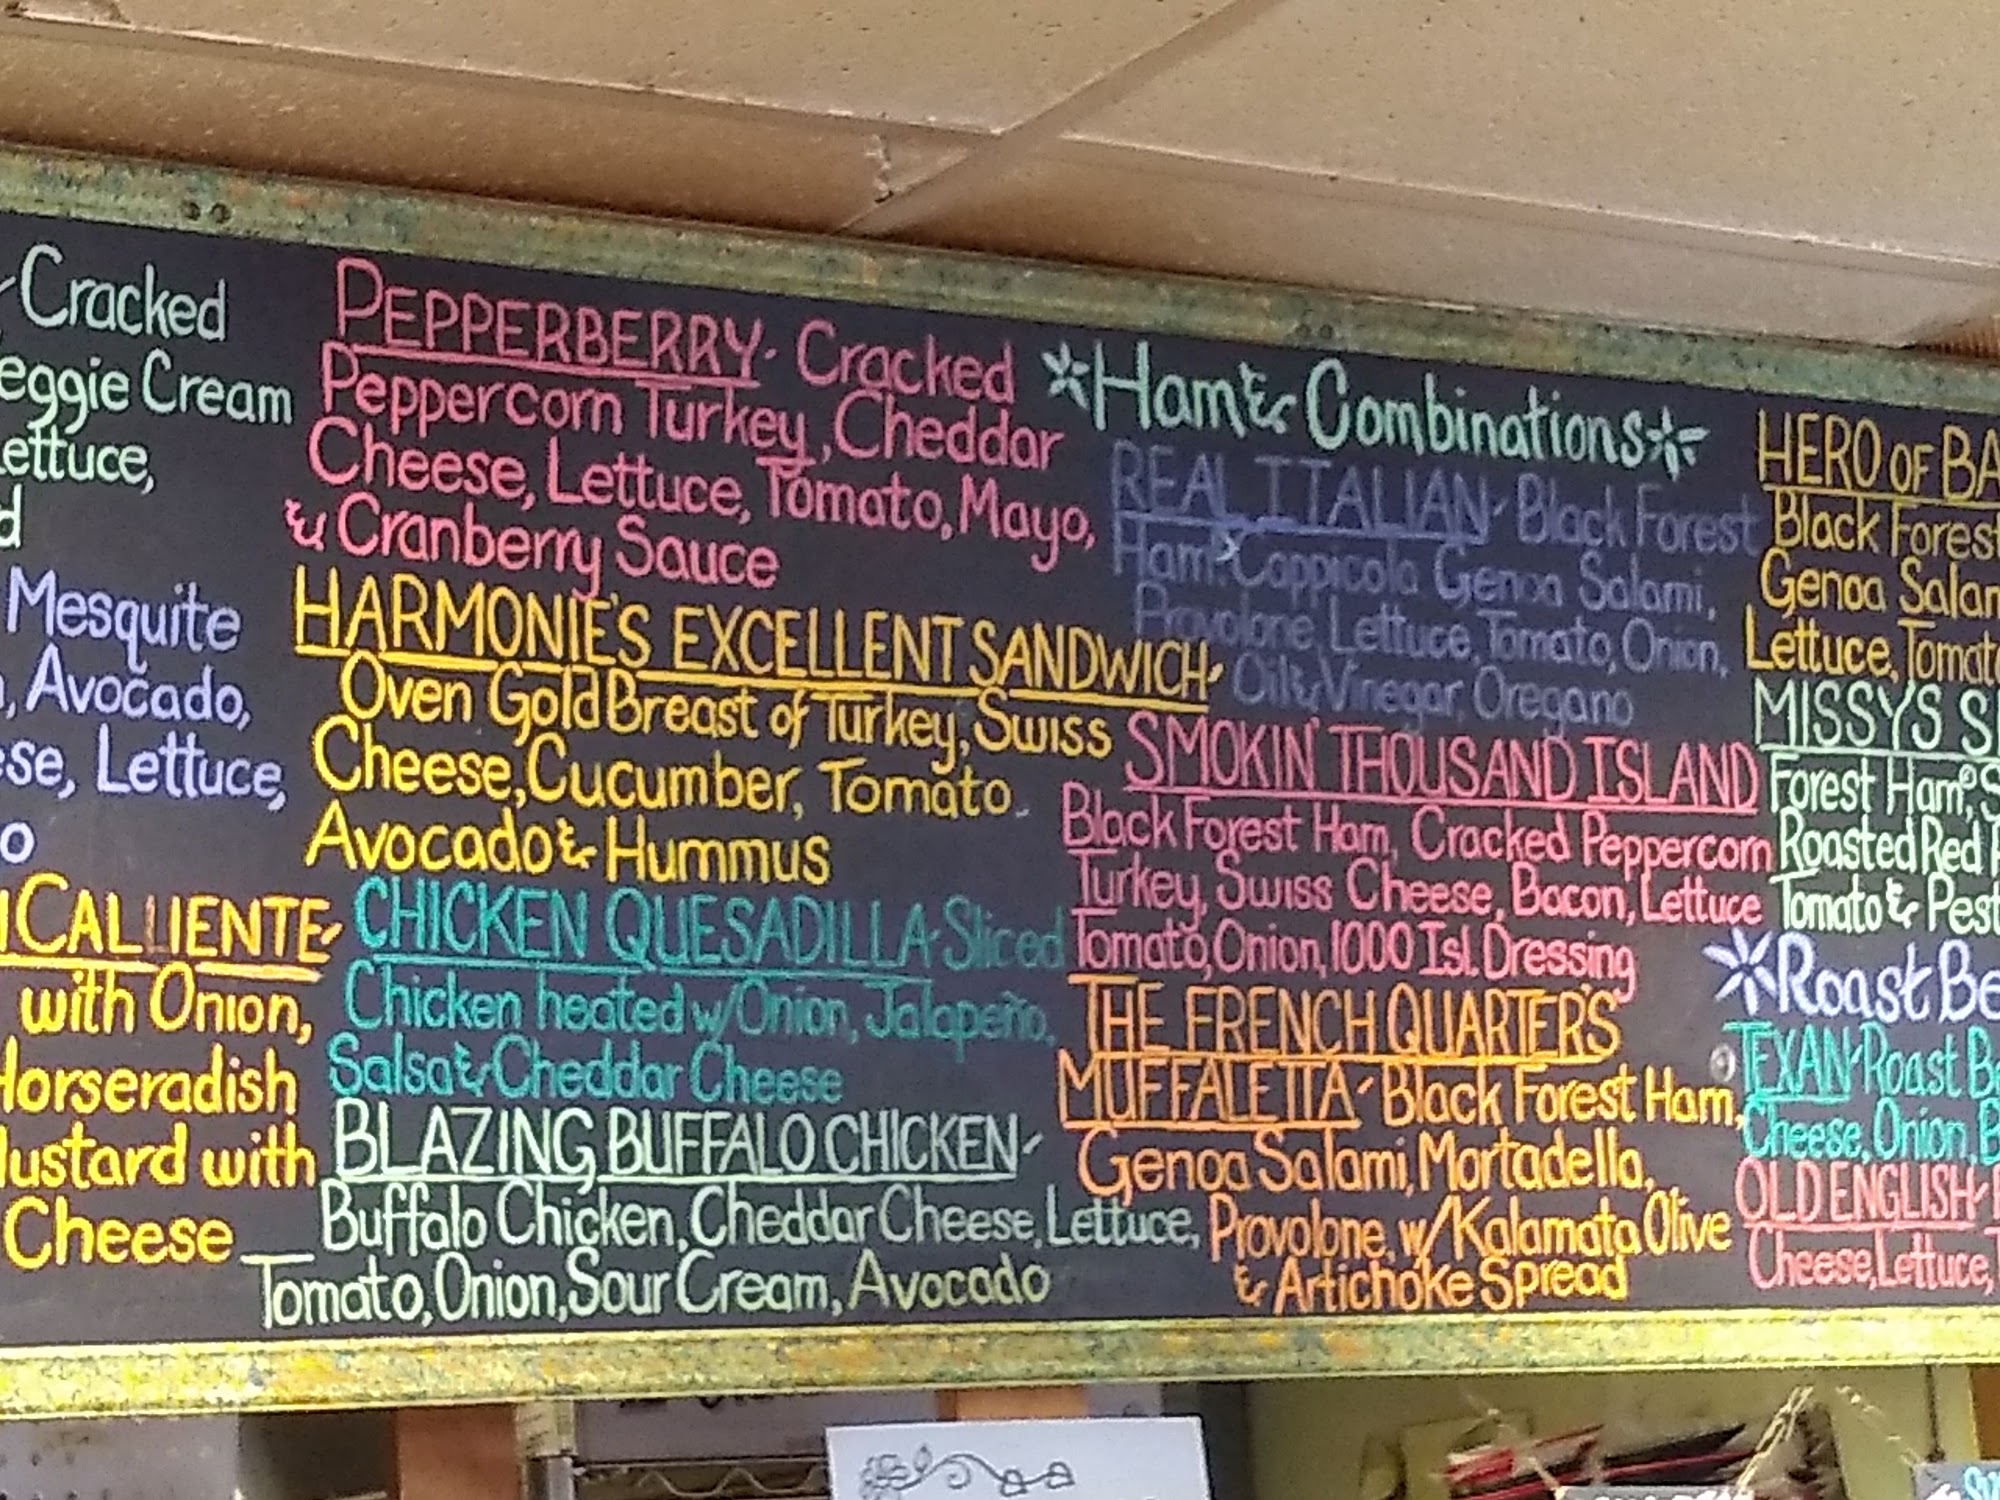 Cracked
eggie Cream
Lettuce,
d
Mesquite
Avocado,
se, Lettuce,
o
CALIENTE-
with Onion,
Horseradish
Mustard with
Cheese
PEPPERBERRY- Cracked
Peppercorn Turkey, Cheddar
Cheese, Lettuce, Tomato, Mayo,
& Cranberry Sauce
HARMONIE'S EXCELLENT SANDWICH-
Oven Gold Breast of Turkey, Swiss
Cheese, Cucumber, Tomato
Avocado & Hummus
CHICKEN QUESADILLA- Sliced
Chicken heated w/Onion, Jalapeño,
Salsa & Cheddar Cheese
BLAZING BUFFALO CHICKEN-
Buffalo Chicken, Cheddar Cheese, Lettuce,
Tomato, Onion, Sour Cream, Avocado
Ham & Combinations
REAL ITALIAN- Black Forest
Ham, Coppicola Genoa Salami,
Provolone, Lettuce, Tomato, Onion,
Oil & Vinegar, Oregano
SMOKIN' THOUSAND ISLAND
Black Forest Ham, Cracked Peppercorn
Turkey, Swiss Cheese, Bacon, Lettuce
Tomato, Onion, 1000 Isl. Dressing
THE FRENCH QUARTER'S
MUFFALETTA- Black Forest Ham,
Genoa Salami, Mortadella,
Provolone, w/Kalamata Olive
& Artichoke Spread
HERO OF BA
Black Forest
Genoa Salam
Lettuce, Tomato
MISSYS S
Forest Ham, S
Roasted Red P
Tomato & Pest
Roast Be
TEXAN- Roast Be
Cheese, Onion, B
OLD ENGLISH-
Cheese, Lettuce, T